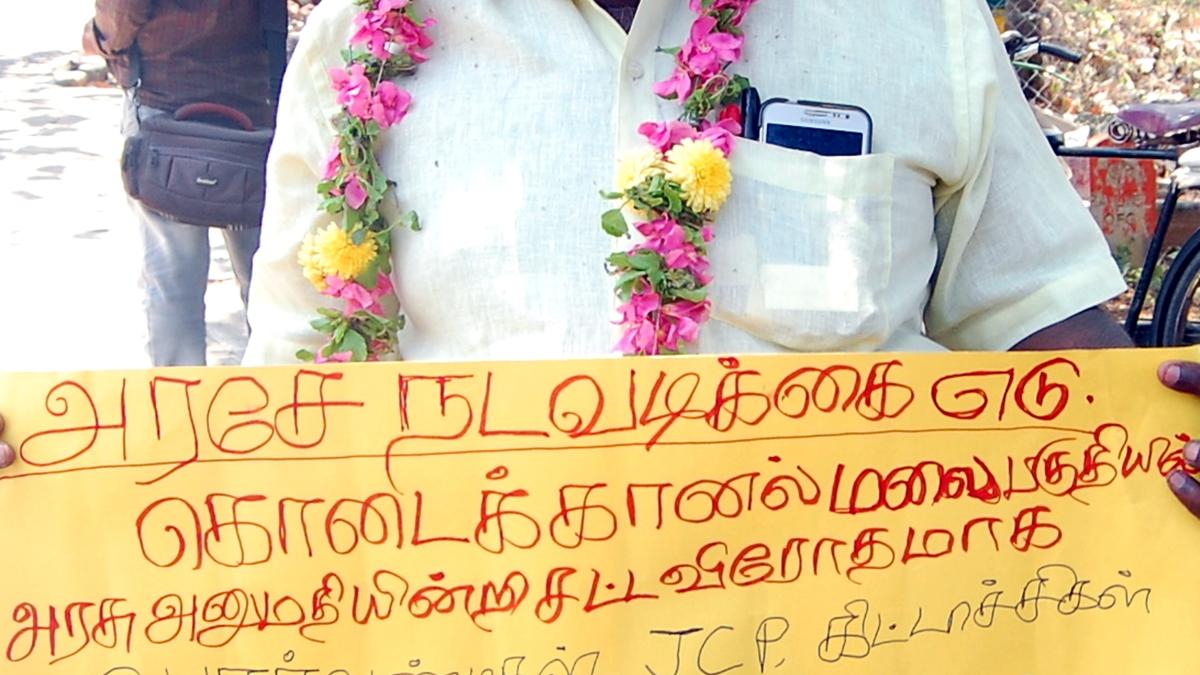 SAMSUNG
அரசே நடவடிக்கை எடு.
கொடைக்கானல் மலைப்பகுதியில்
அரசு அனுமதியின்றி சட்டவிரோதமாக
JCP. கிட்டாச்சிகள்